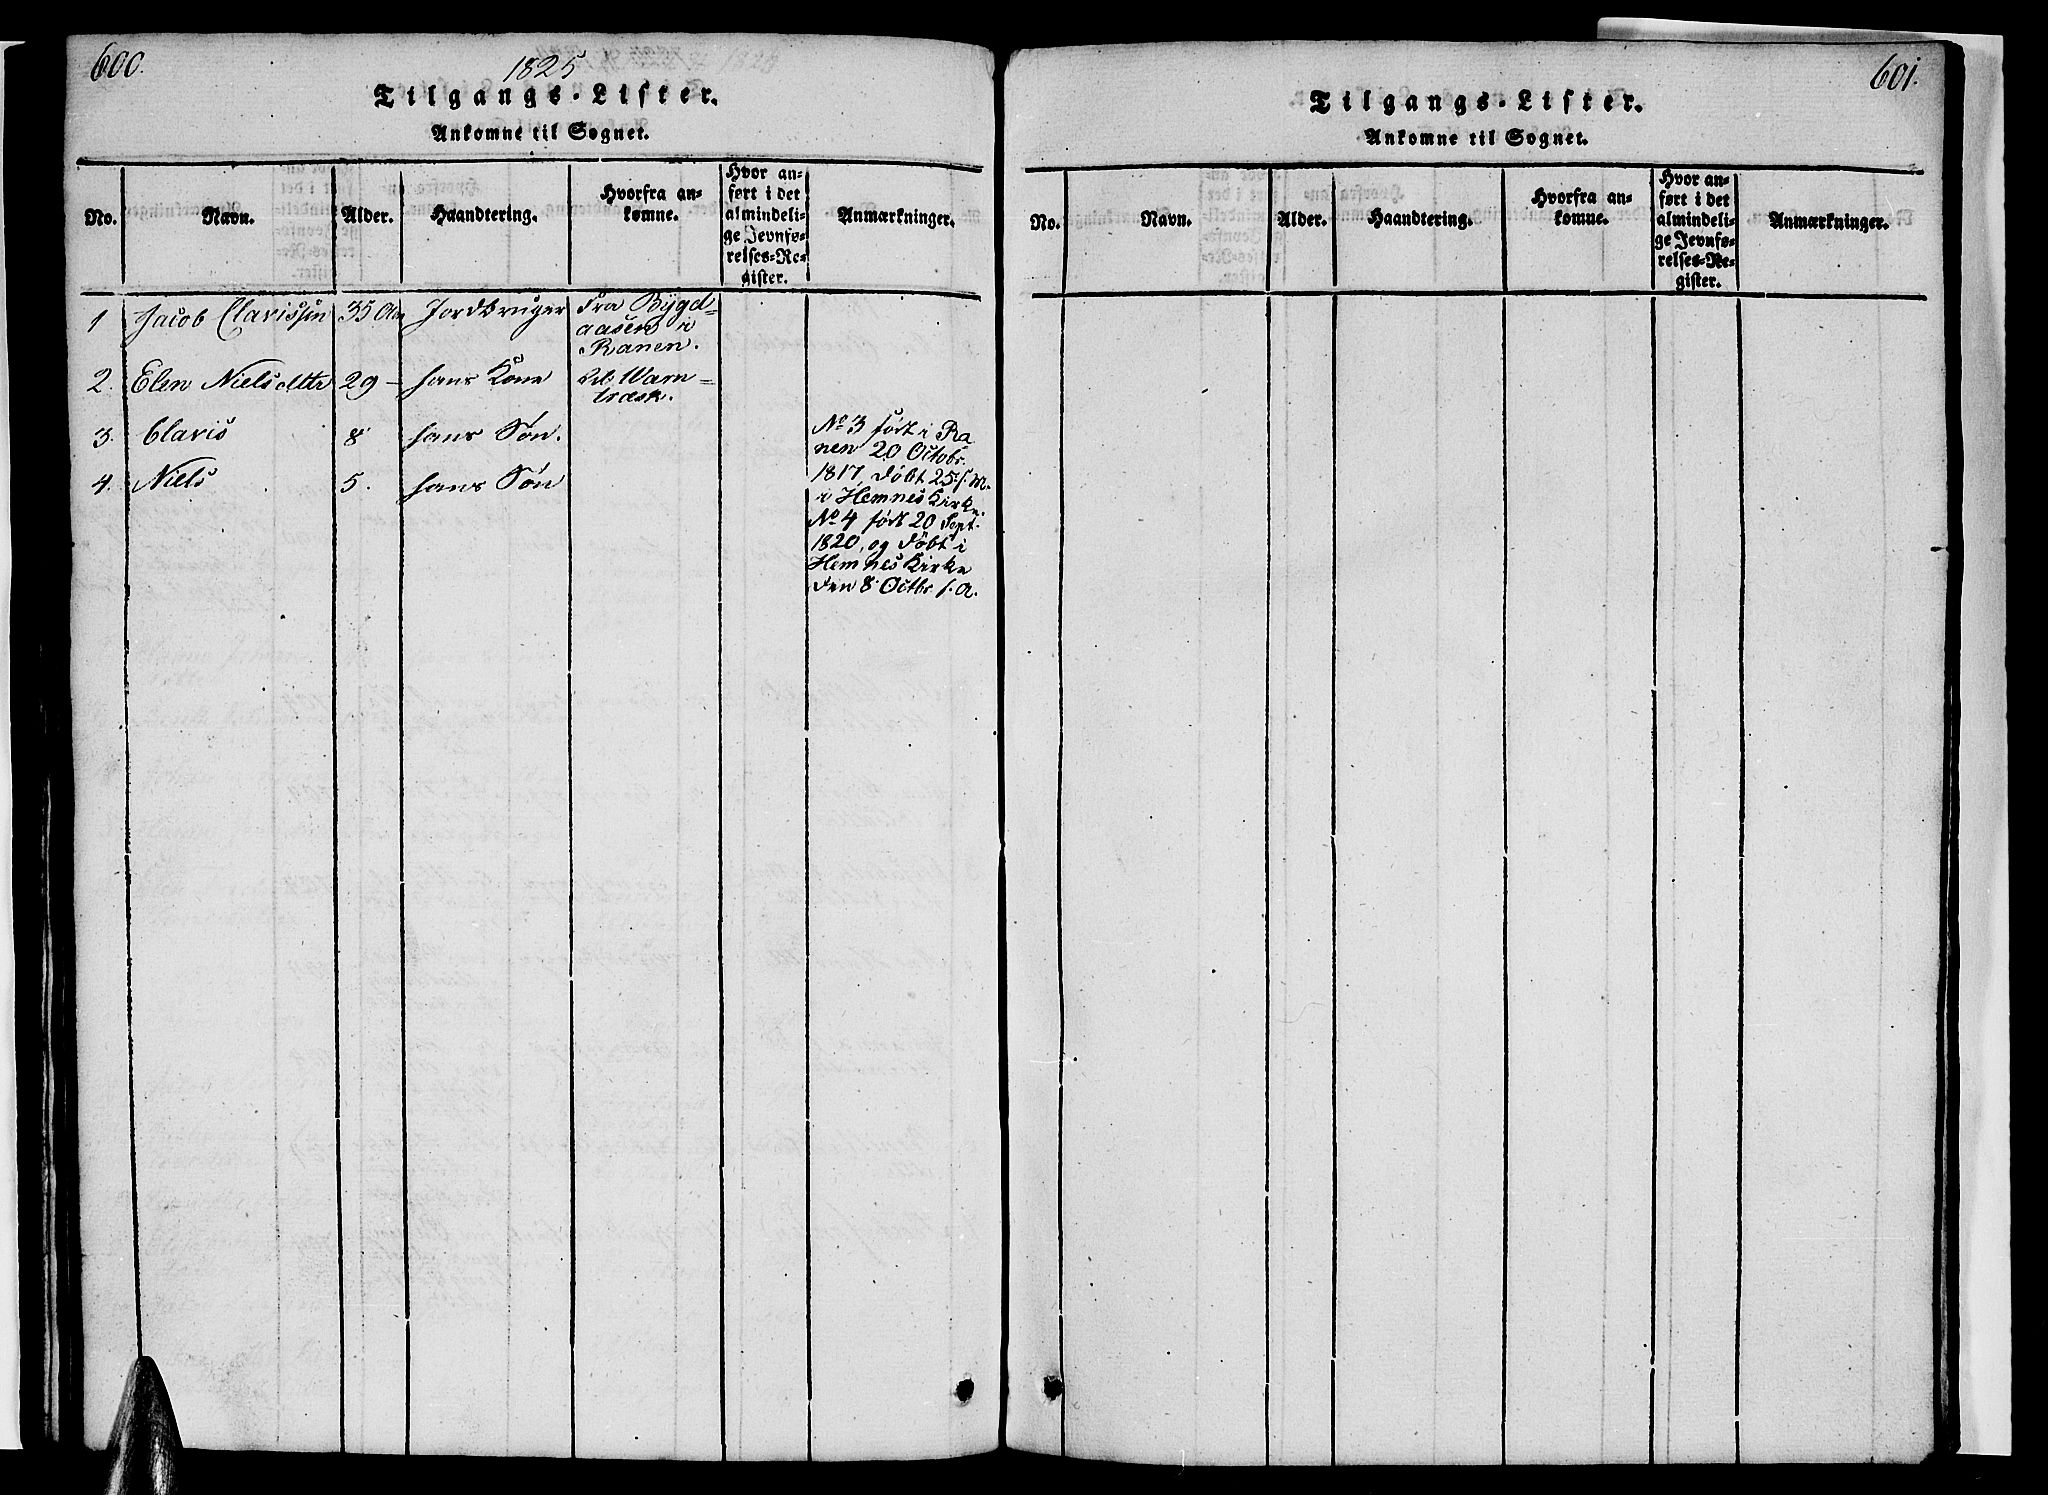 600.
1825
Tilgangs-Lister.
Ankomne til Sognet.
No.
Navn.
Alder.
Haandtering.
Hvorfra an-
komne.
Hvor an-
ført i det
almindeli-
ge Jevnfø-
relses-Re-
gister.
Anmærkninger.
1 Jacob Clarissen 35 Aar Jordbruger Fra Bygd-
aasen i
Ranen.
2. Elen Nielsdttr 29 - hans Kone til Warn-
træsk.
3. Claris 8 hans Søn.
4. Niels 5. hans Søn
No 3 født i Ra
nen 20 Octobr.
1817, døbt 25 s. M.
i Hemnes Kirke.
No 4 født 20 Sept.
1820, og døbt i
Hemnes Kirke
den 8 Octbr. s. A.
601.
Tilgangs-Lister.
Ankomne til Sognet.
No.
Navn.
Alder.
Haandtering.
Hvorfra an-
komne.
Hvor an-
ført i det
almindeli-
ge Jevnfø-
relses-Re-
gister.
Anmærkninger.